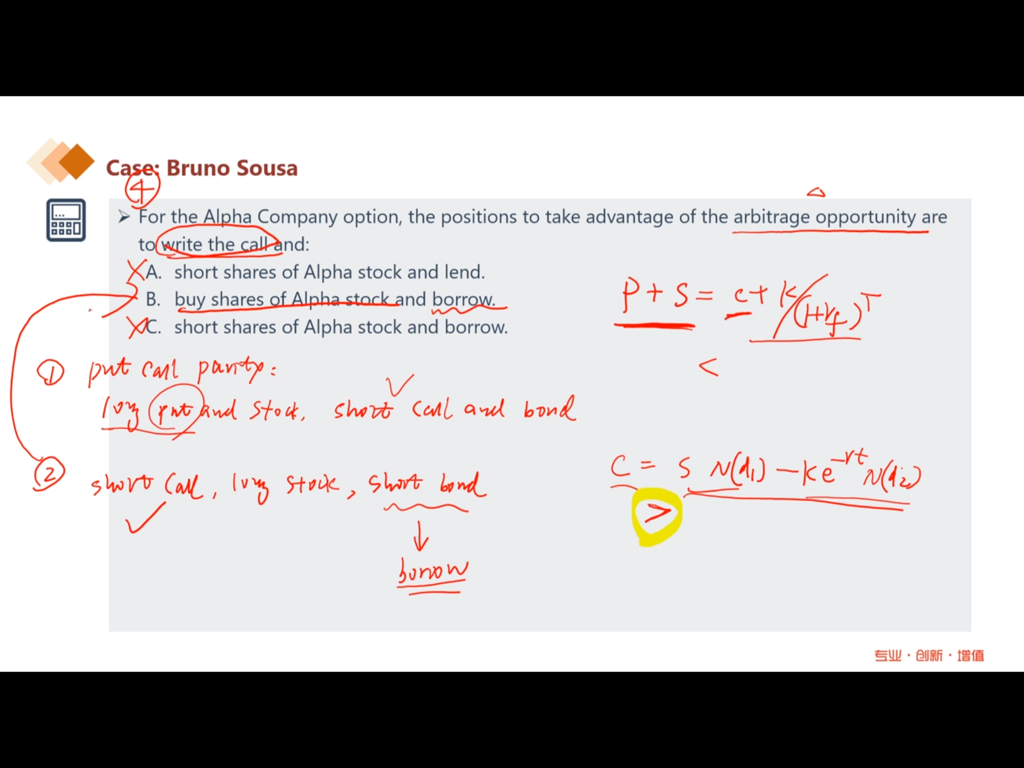 Case: Bruno Sousa
④
➤ For the Alpha Company option, the positions to take advantage of the arbitrage opportunity are
to write the call and:
A. short shares of Alpha stock and lend.
B. buy shares of Alpha stock and borrow.
C. short shares of Alpha stock and borrow.
P + S = c + K/(1+rf)^T
<
① put call parity:
long put and stock, short call and bond
② short call, long stock, short bond
borrow
C = S N(d1) - Ke^-rt N(d2)
>
专业·创新·增值